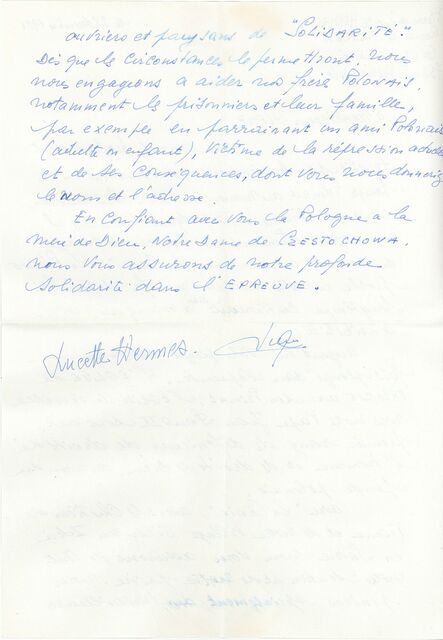 ouvriers et paysans de "SOLIDARITÉ".
Dès que le circonstances le permettront, nous
nous engageons a aider nos frère POLONAIS,
notamment le prisonniers et leur famille,
par exemple en parrainant un ami Polonais
(adulte ou enfant), Victime de la répression
et de ses conséquences, dont vous nous
le nom et l'adresse.
En confiant avec vous la Pologne a la
mère de Dieu, Notre Dame de CZESTOCHOWA,
nous vous assurons de notre profonde
Solidarité dans l'EPREUVE.
Lucette Hermes.